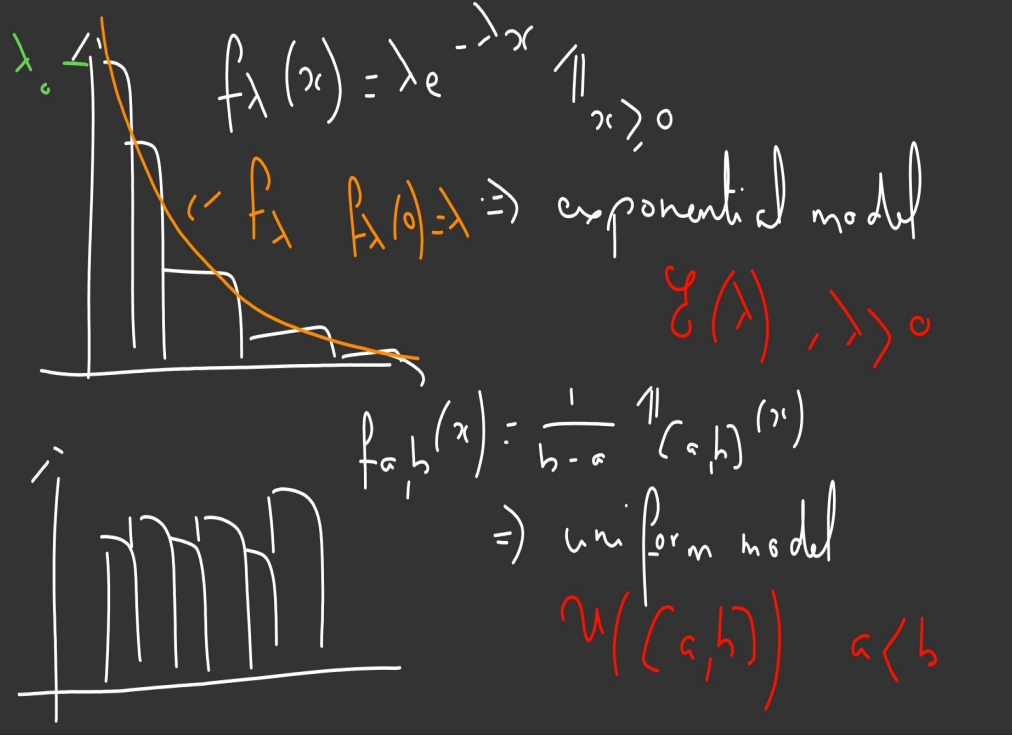 λ₀
f_λ(x) = λe^{-λx} 𝟙_{x≥0}
f_λ f_λ(0)=λ ⇒ exponential model
ℰ(λ), λ>0
f_{a,b}(x) = \frac{1}{b-a} 𝟙_{[a,b]}(x)
⇒ uniform model
𝒰([a,b]) a<b